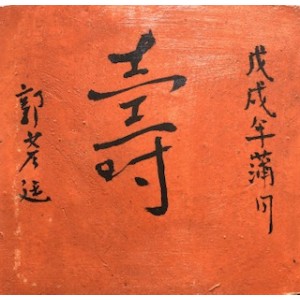 戊戌年蒲月
壽
郭䇹廷